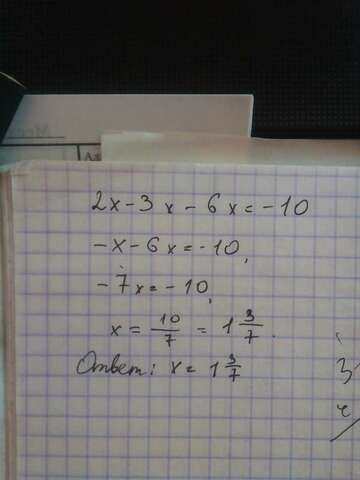 2x-3x-6x=-10
-x-6x=-10,
-7x=-10,
x=10/7=1 3/7.
Ответ: x=1 3/7